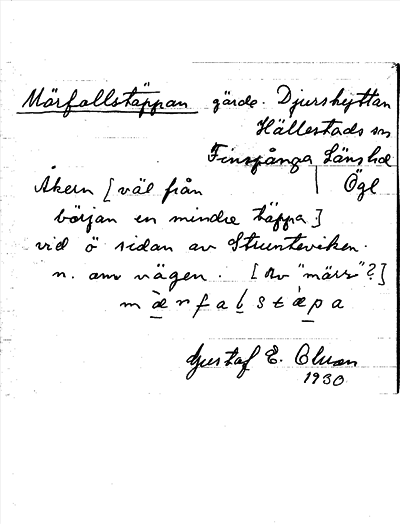 Märfallstäppan gärde. Djurshyttan
Hällestads sn
Finspånga Länshd
Åkern [väl från Ögl
början en mindre täppa]
vid ö sidan av Strunteviken.
n. om vägen. [Av "märr"?]
m æ r f a l s t æ p a
Gustaf E. Olsson
1930